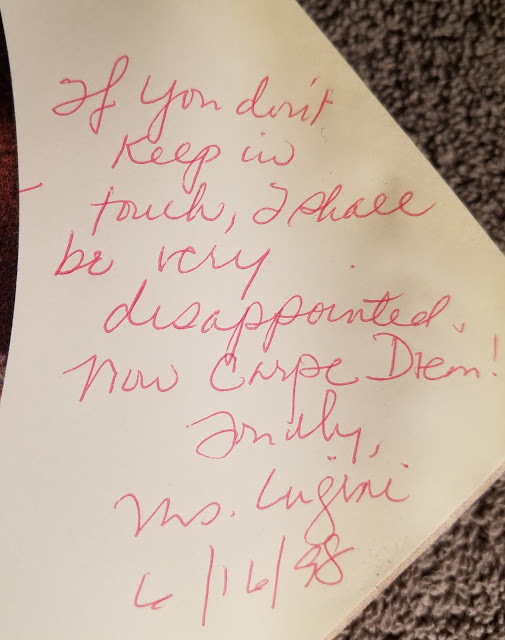 If you don't
keep in
touch, I shall
be very
disappointed.
Now Carpe Diem!
Fondly,
Ms. Lugini
6/16/98